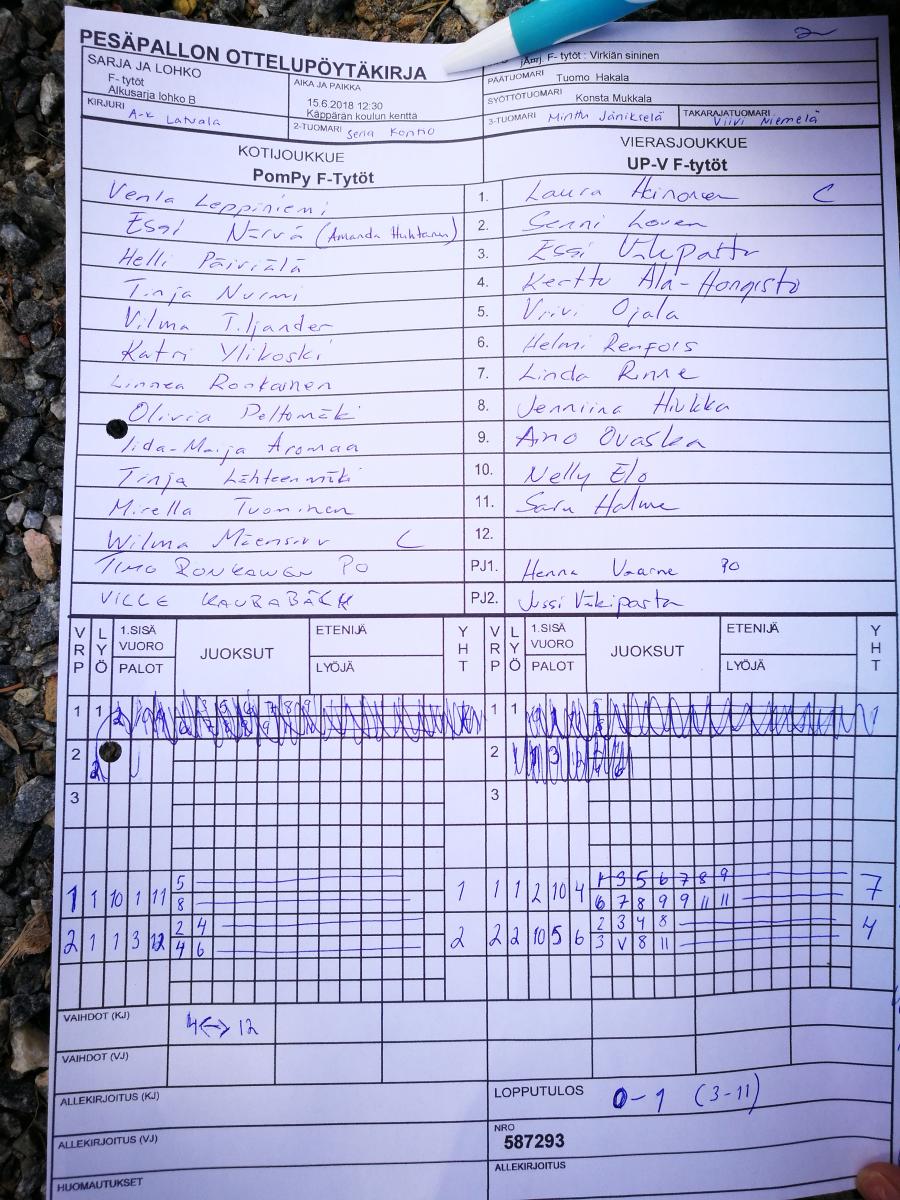 PESÄPALLON OTTELUPÖYTÄKIRJA
F- tytöt : Virkiän sininen
SARJA JA LOHKO
F- tytöt
Alkusarja lohko B
AIKA JA PAIKKA
15.6.2018 12:30
Käppärän koulun kenttä
PÄÄTUOMARI Tuomo Hakala
SYÖTTÖTUOMARI Konsta Mukkala
KIRJURI A-K Latvala
2-TUOMARI Seria Kontio
3-TUOMARI Minttu Jänikselä
TAKARAJATUOMARI Viivi Niemelä
KOTIJOUKKUE VIERASJOUKKUE
PomPy F-Tytöt UP-V F-tytöt
Venla Leppiniemi 1. Laura Heinonen C
Essi Närvä (Amanda Huhtanen) 2. Senni Loven
Helli Päiviälä 3. Essi Välipasta
Tinja Nurmi 4. Kerttu Ala-Hongisto
Vilma Tiljander 5. Viivi Ojala
Katri Ylikoski 6. Helmi Renfors
Linnea Ronkainen 7. Linda Rinne
Olivia Peltomäki 8. Jenniina Hiukka
Iida-Maija Aromaa 9. Aino Ovaska
Tinja Lähteenmäki 10. Nelly Elo
Mirella Tuominen 11. Saru Halme
Wilma Mäensivu C 12.
TIMO RONKAINEN PO PJ1. Henna Vaarne PO
VILLE KAURABÄCK PJ2. Jussi Välipasta
VRP LYÖ 1.SISÄ VUORO PALOT JUOKSUT ETENIJÄ LYÖJÄ YHT VRP LYÖ 1.SISÄ VUORO PALOT JUOKSUT ETENIJÄ LYÖJÄ YHT
1 1 1 1
2 2
3 3
1 1 10 1 11 5 1 1 1 2 10 4 1 3 5 6 7 8 9 7
8 6 7 8 9 9 11 11
2 1 1 3 12 2 4 2 2 2 10 5 6 2 3 4 8 4
4 6 3 V 8 11
VAIHDOT (KJ) 4<->12
VAIHDOT (VJ)
ALLEKIRJOITUS (KJ)
LOPPUTULOS 0-1 (3-11)
ALLEKIRJOITUS (VJ)
NRO
587293
HUOMAUTUKSET
ALLEKIRJOITUS